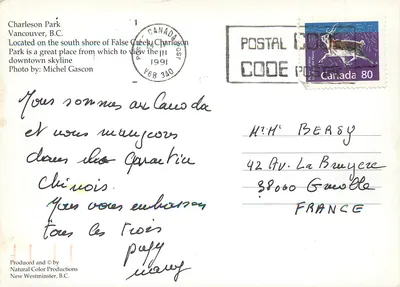 Charleson Park
Vancouver, B.C.
Located on the south shore of False Creek, Charleson
Park is a great place from which to view the
downtown skyline
Photo by: Michel Gascon
CANADA POST
III
1991
V6B 3A0
POSTAL CODE
CODE POSTAL
Canada 80
Nous sommes au Canada
et nous mangeons
dans le quartier
chinois.
Nous vous embrassons
tous les trois
papy
mamy
Mr Mme BERGY
42 Av. La Bruyere
38000 Grenoble
FRANCE
Produced and © by
Natural Color Productions
New Westminster, B.C.